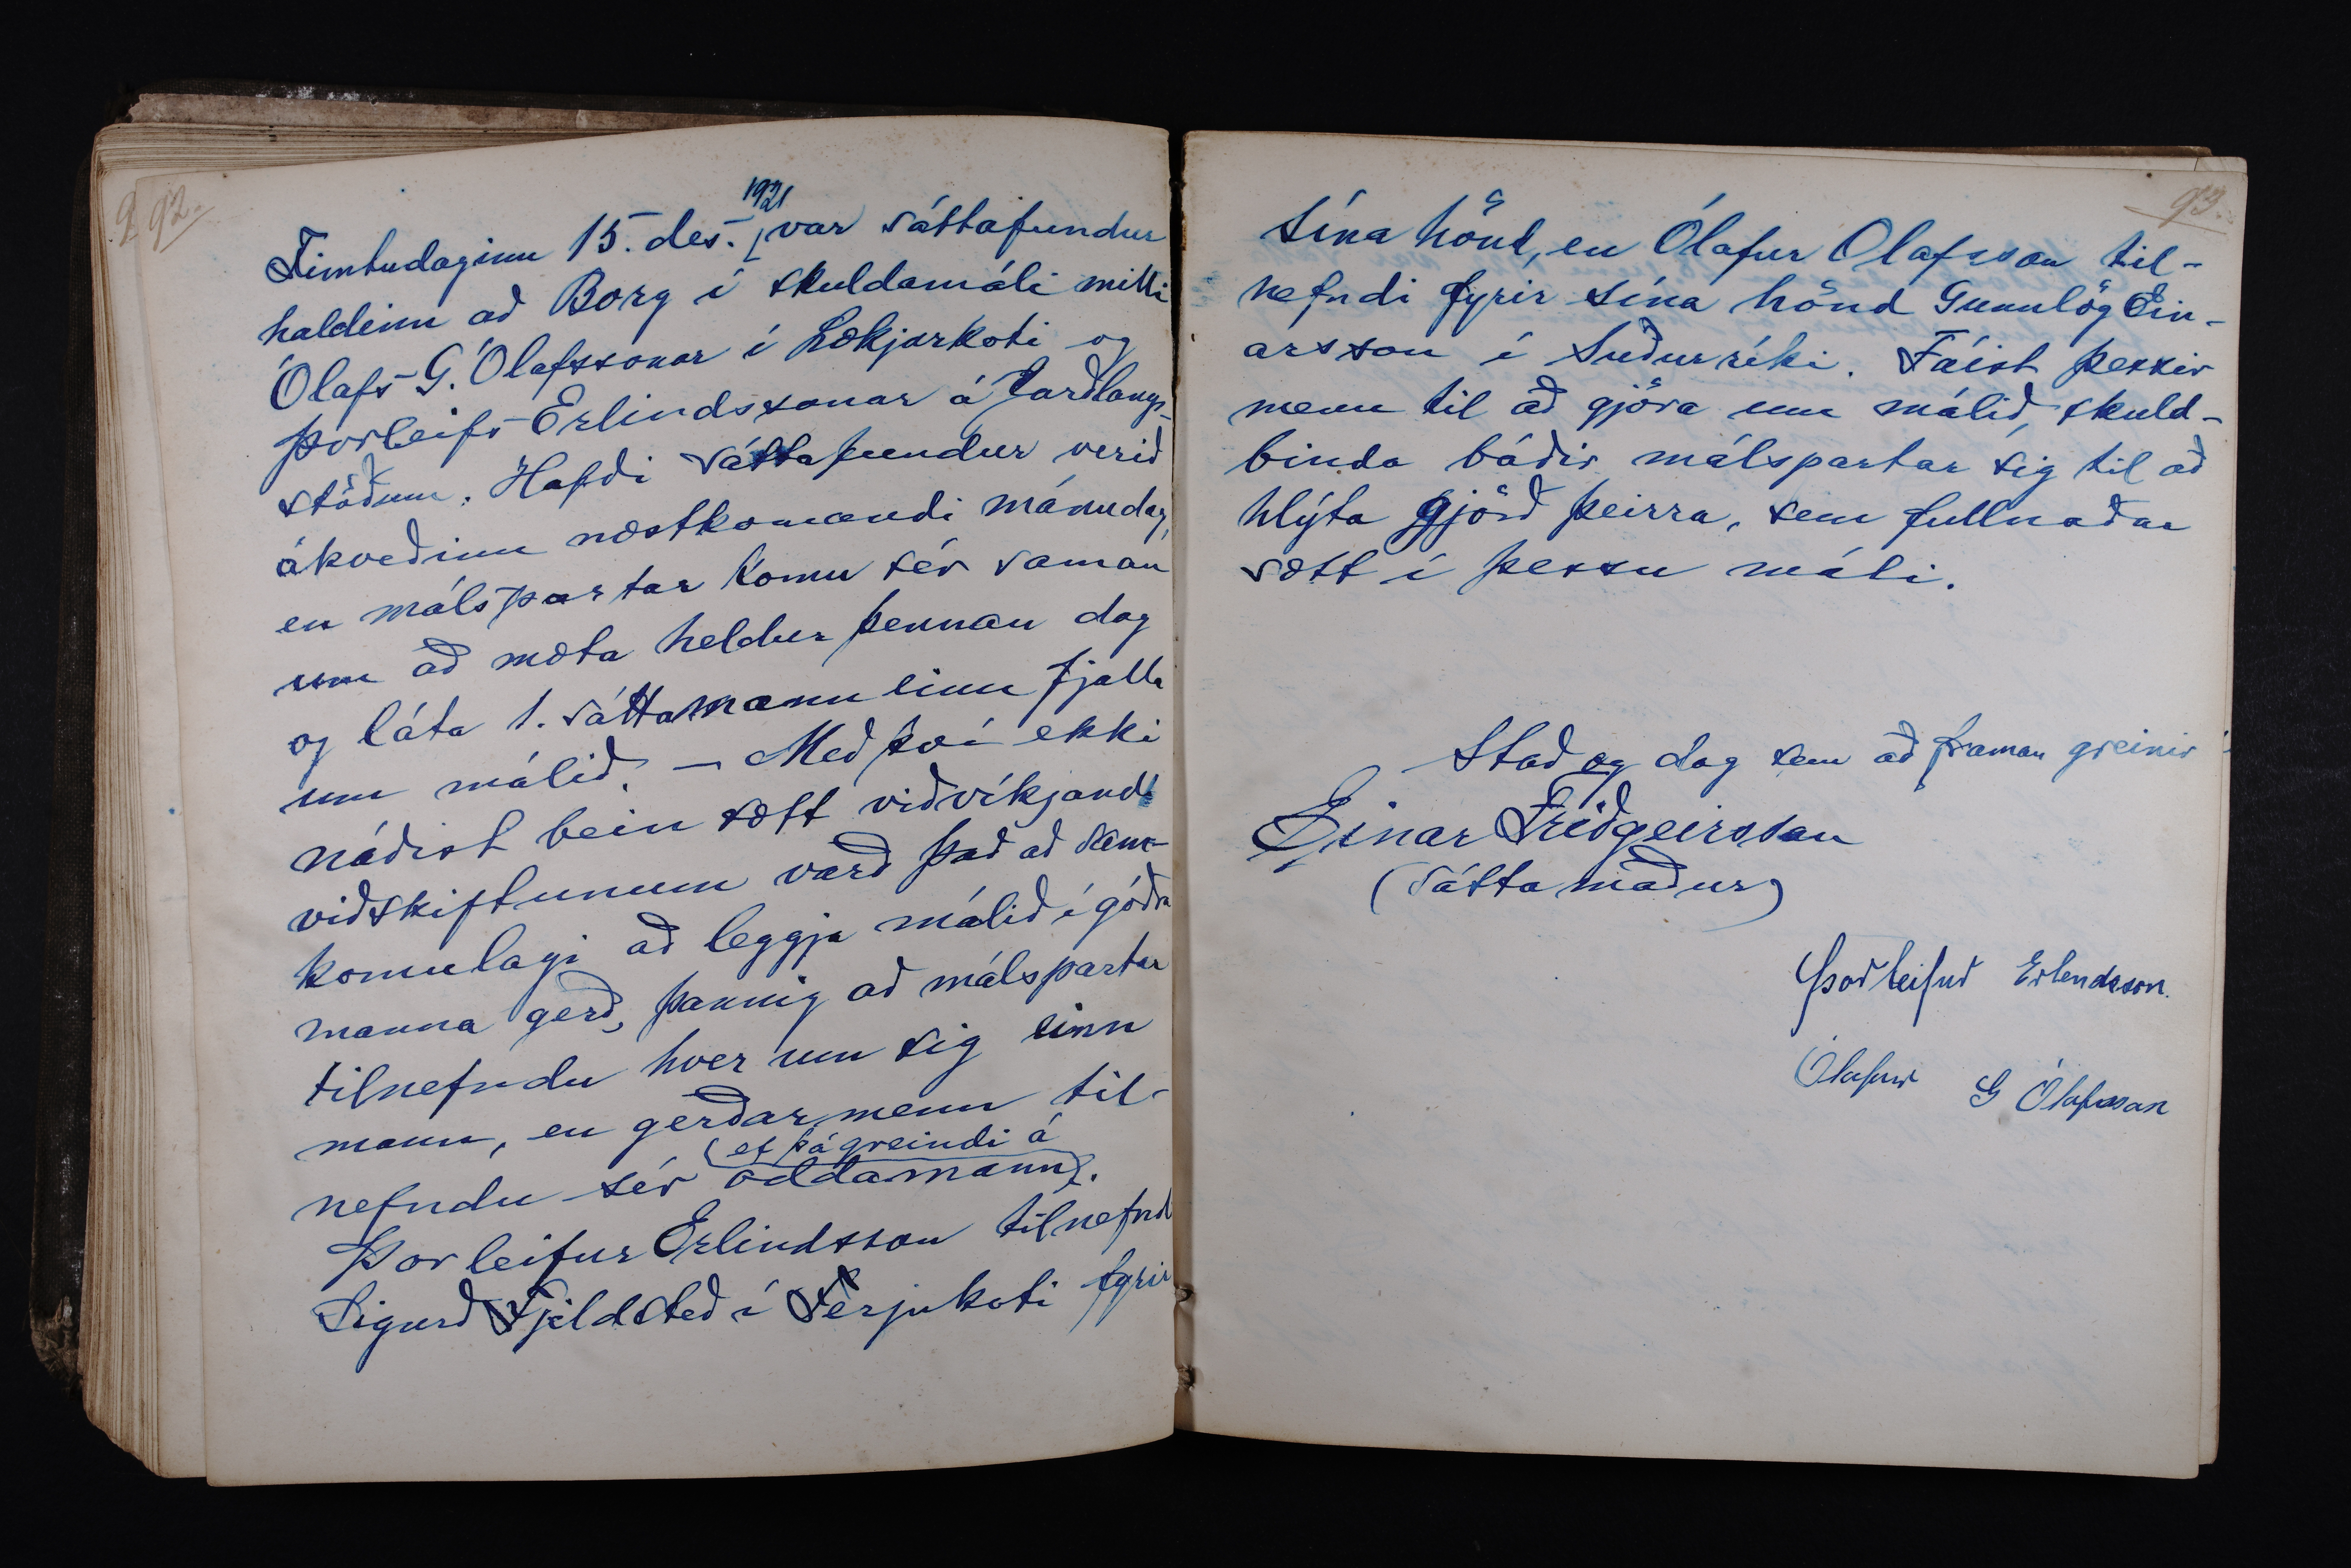 92.
Fimtudaginn 15. des. 1921 var sáttafundur
haldinn að Borg í skuldamáli milli
Ólafs G. Ólafssonar í Lækjarkoti og
Þorleifs Erlindssonar á Jarðlangs-
stöðum. Hafði sáttafundur verið
ákveðinn næstkomandi mánudag,
en málspartar komu sér saman
um að mæta heldur þennan dag
og láta 1. sáttamanninn fjalla
um málið. – Með því ekki
náðist bein sætt viðvíkjandi
viðskiftunum varð það að sam-
komulagi að leggja málið í góðra
manna gerð, þannig að málspartar
tilnefndu hver um sig einn
mann, en gerðarmenn til-
(ef þá greindi á
nefndu sér oddamann).
Þorleifur Erlindsson tilnefndi
Sigurð Fjeldsteð í Ferjukoti fyrir
93.
sína hönd, en Ólafur Ólafsson til-
nefndi fyrir sína hönd Gunnlög Ein-
arsson í Suðurríki. Fáist þessir
menn til að gjöra um málið, skuld-
binda báðir málspartar sig til að
hlýta gjörð þeirra, sem fullnaðar
sætt í þessu máli.
Stað og dag sem að framan greinir
Einar Friðgeirsson
(sáttamaður)
Þorleifur Erlendsson.
Ólafur G Ólafsson